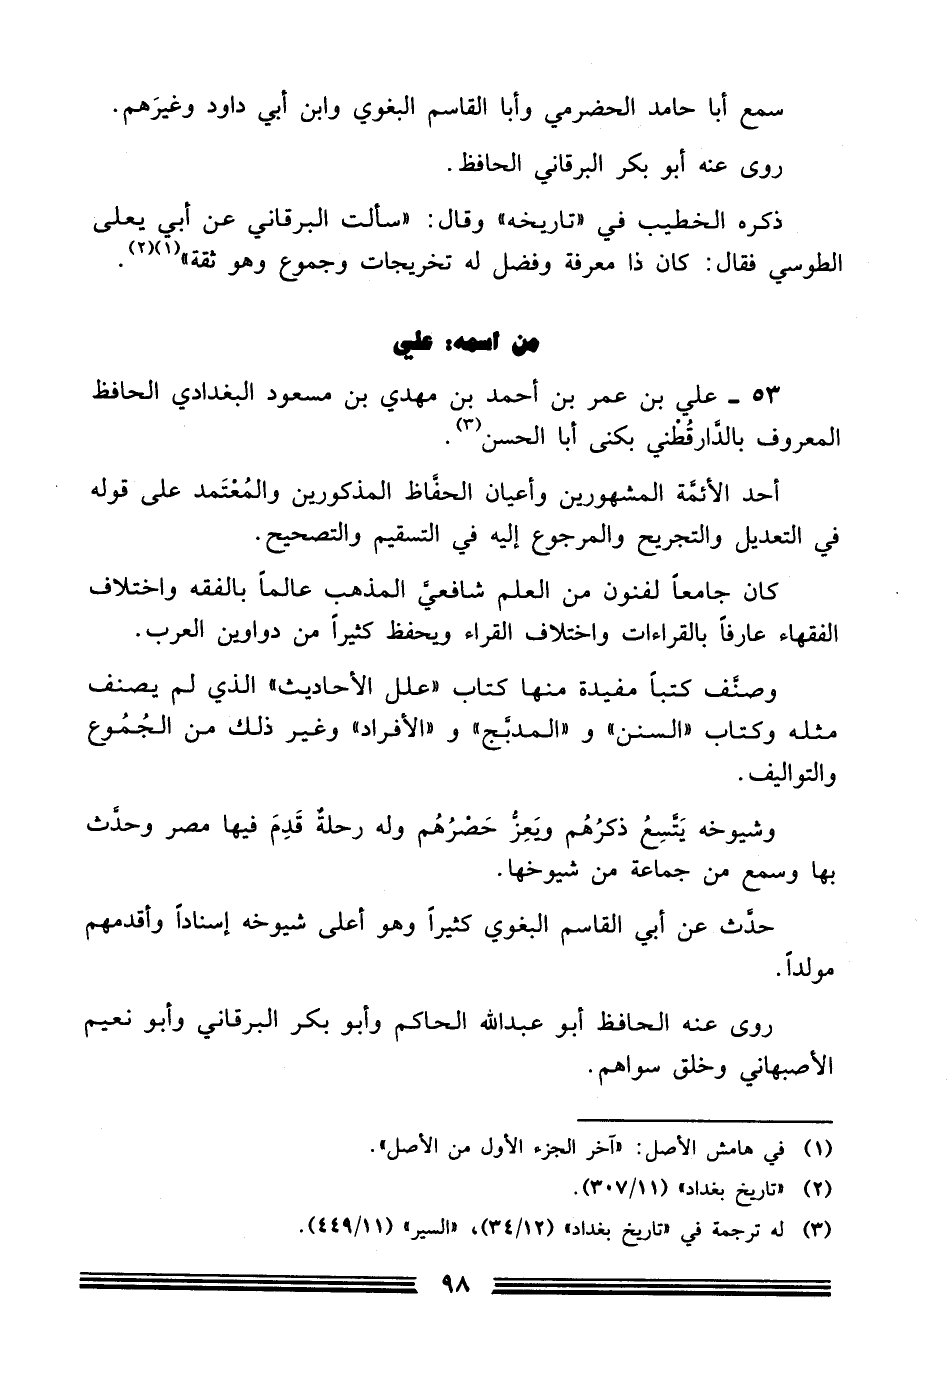 سمع أبا حامد الحضرمي وأبا القاسم البغوي وابن أبي داود وغيرَهم.
روى عنه أبو بكر البرقاني الحافظ.
ذكره الخطيب في «تاريخه» وقال: «سألت البرقاني عن أبي يعلى
الطوسي فقال: كان ذا معرفة وفضل له تخريجات وجموع وهو ثقة»(١)(٢).
من اسمه: علي
٥٣ ـ علي بن عمر بن أحمد بن مهدي بن مسعود البغدادي الحافظ
المعروف بالدَّارقُطْني بكنى أبا الحسن(٣).
أحد الأئمَّة المشهورين وأعيان الحفَّاظ المذكورين والمُعْتَمد على قوله
في التعديل والتجريح والمرجوع إليه في التسقيم والتصحيح.
كان جامعاً لفنون من العلم شافعيَّ المذهب عالماً بالفقه واختلاف
الفقهاء عارفاً بالقراءات واختلاف القراء ويحفظ كثيراً من دواوين العرب.
وصنَّف كتباً مفيدة منها كتاب «علل الأحاديث» الذي لم يصنف
مثله وكتاب «السنن» و «المدبَّج» و «الأفراد» وغير ذلك من الجُمُوع
والتواليف.
وشيوخه يَتَّسِعُ ذكرُهُم ويَعِزُّ حَصْرُهُم وله رحلةٌ قَدِمَ فيها مصر وحدَّث
بها وسمع من جماعة من شيوخها.
حدَّث عن أبي القاسم البغوي كثيراً وهو أعلى شيوخه إسناداً وأقدمهم
مولداً.
روى عنه الحافظ أبو عبدالله الحاكم وأبو بكر البرقاني وأبو نعيم
الأصبهاني وخلق سواهم.
(١) في هامش الأصل: «آخر الجزء الأول من الأصل».
(٢) «تاريخ بغداد» (٣٠٧/١١).
(٣) له ترجمة في «تاريخ بغداد» (٣٤/١٢)، «السير» (٤٤٩/١١).
٩٨